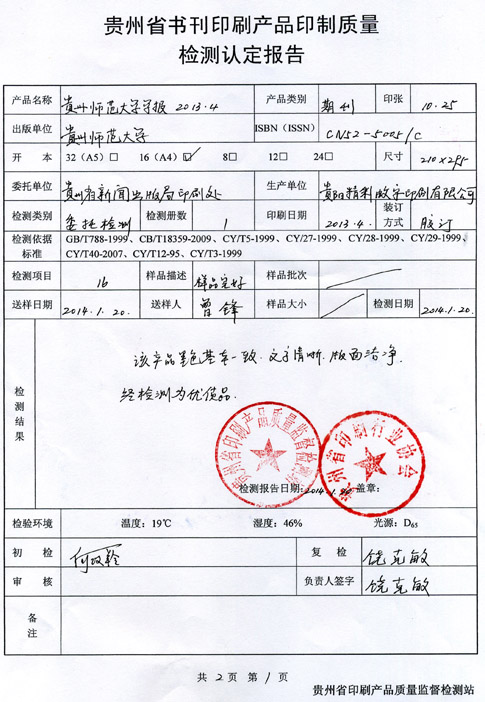 贵州省书刊印刷产品印制质量
检测认定报告
产品名称 贵州师范大学学报 2013.4 产品类别 期刊 印张 10.25
出版单位 贵州师范大学 ISBN（ISSN） CN52-5005/C
开 本 32（A5）□ 16（A4）☑ 8□ 12□ 24□ 尺寸 210×295
委托单位 贵州省新闻出版局印刷处 生产单位 贵阳精彩数字印刷有限公司
检测类别 委托检测 检测册数 1 印刷日期 2013.4. 装订方式 胶订
检测依据标准 GB/T788-1999、CB/T18359-2009、CY/T5-1999、CY/27-1999、CY/28-1999、CY/29-1999、
CY/T40-2007、CY/T12-95、CY/T3-1999
检测项目 16 样品描述 样品完好 样品批次
送样日期 2014.1.20. 送样人 曹锋 样品大小 检测日期 2014.1.20.
检测结果
该产品墨色基本一致，文字清晰，版面洁净，
经检测为优质品。
贵州省印刷产品质量监督检测站
贵州省印刷行业协会
检测报告日期：2014.1. 盖章：
检验环境 温度：19℃ 湿度：46% 光源：D65
初 检 复 检 饶克敏
审 核 负责人签字 饶克敏
备注
共 2 页 第 1 页
贵州省印刷产品质量监督检测站